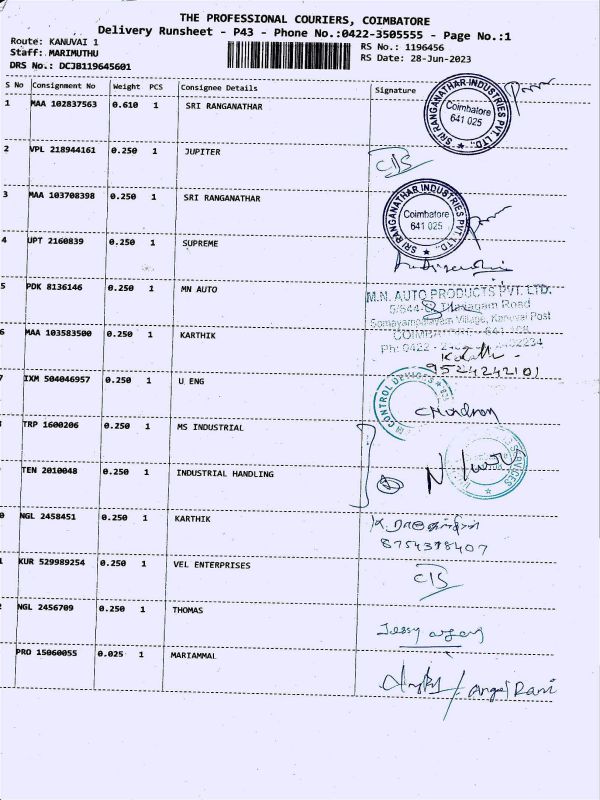 THE PROFESSIONAL COURIERS, COIMBATORE
Delivery Runsheet - P43 - Phone No.:0422-3505555 - Page No.:1
Route: KANUVAI 1
Staff: MARIMUTHU
DRS No.: DCJB119645601
RS No.: 1196456
RS Date: 28-Jun-2023
S No Consignment No Weight PCS Consignee Details Signature
1 MAA 102837563 0.610 1 SRI RANGANATHAR
SRI RANGANATHAR INDUSTRIES PVT. LTD.,
Coimbatore
641 025
2 VPL 218944161 0.250 1 JUPITER
3 MAA 103708398 0.250 1 SRI RANGANATHAR
SRI RANGANATHAR INDUSTRIES PVT. LTD.,
Coimbatore
641 025
4 UPT 2160839 0.250 1 SUPREME
5 PDK 8136146 0.250 1 MN AUTO
M.N. AUTO PRODUCTS PVT. LTD.
Somayampalayam Village, Kanuvai Post
6 MAA 103583500 0.250 1 KARTHIK
9524242101
7 IXM 504046957 0.250 1 U ENG
CONTROL DEVICES
TRP 1600206 0.250 1 MS INDUSTRIAL
SERVICES
TEN 2010048 0.250 1 INDUSTRIAL HANDLING
0 NGL 2458451 0.250 1 KARTHIK
8754398407
1 KUR 529989254 0.250 1 VEL ENTERPRISES
2 NGL 2456709 0.250 1 THOMAS
PRO 15060055 0.025 1 MARIAMMAL
Angel Rani